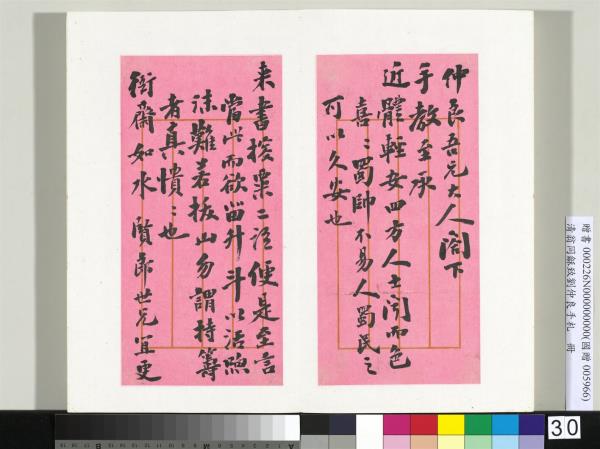 仲良吾兄大人閣下
手教至承
近體輕安四方人士聞而色
喜〻蜀帥不易人蜀民之
可以久安也
來書撥票二語便是至言
當此而欲留升斗以活
難若拔山勿謂持籌
者真憒〻也
衙齋如水賢郎世兄宜更
贈書 000226N000000000(國贈 005966)
清翁同龢致劉仲良手札 冊
30